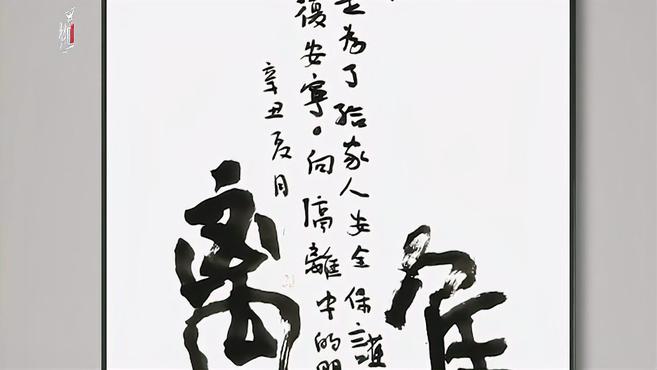 為了給家人安全保護
復安寧。向隔離中的
辛丑夏月
离